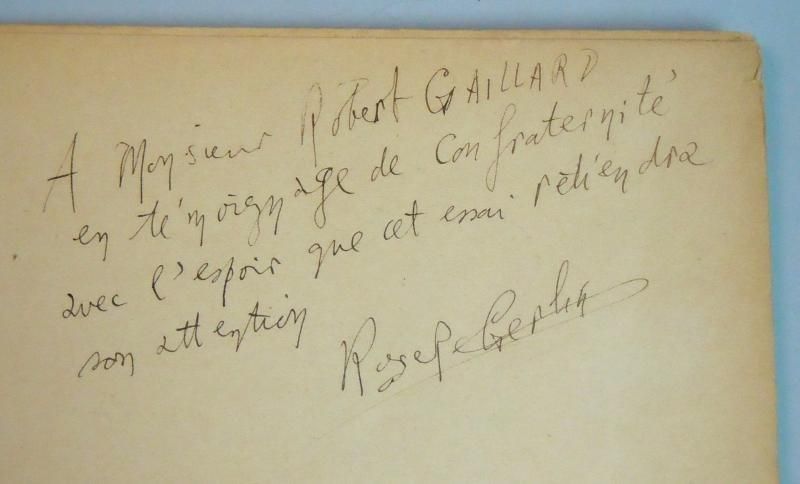 A Monsieur Robert GAILLARD
en témoignage de confraternité
avec l'espoir que cet essai retiendra
son attention